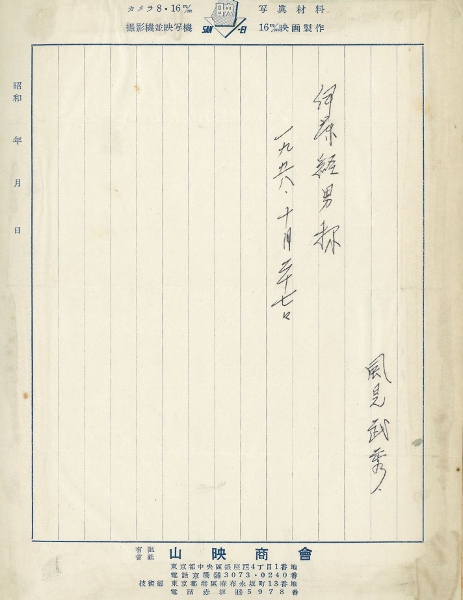 カメラ8・16㎜ 写真材料
撮影機並映写機 16㎜映画製作
SAN-EI
昭和 年 月 日
風見武秀
一九五八、十月二十七日
有限会社 山映商會
東京都中央區銀座西4丁目1番地
電話京橋(56)3073・0240番
技術部 東京都港區麻布永坂町13番地